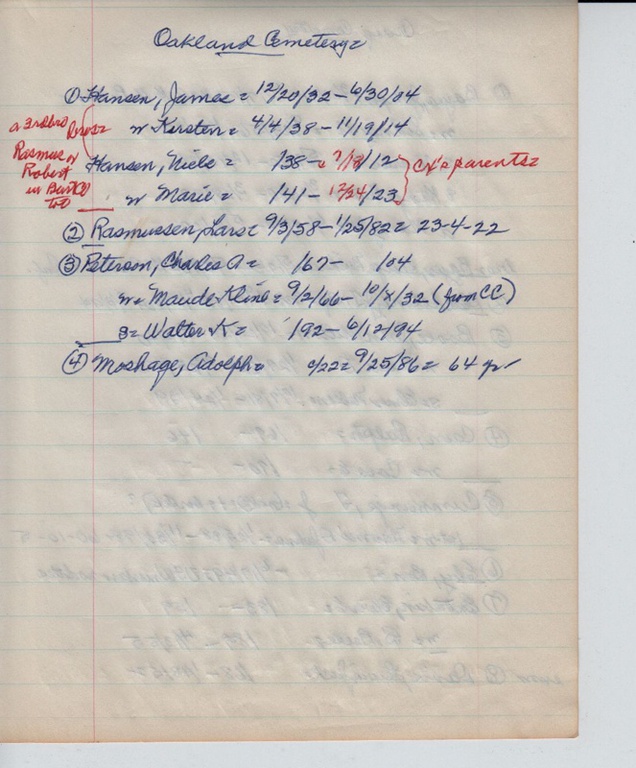 Oakland Cemetery=
① Hansen, James = 12/20/32 - 6/30/04
w Kirsten = 4/4/38 - 11/19/14
a 3rd bro
Rasmus or
Robert
in
Hansen, Niels = /38 - 7/18/12
w Marie = /41 - 12/24/23
parents=
② Rasmussen, Lars = 9/3/58 - 1/25/82 = 23-4-22
③ Peterson, Charles A = /67 - /04
w = Maude Kline = 9/2/66 - 10/x/32 (from CC)
s = Walter K = /92 - 6/12/94
④ Moshage, Adolph = c/22 = 9/25/86 = 64 yr